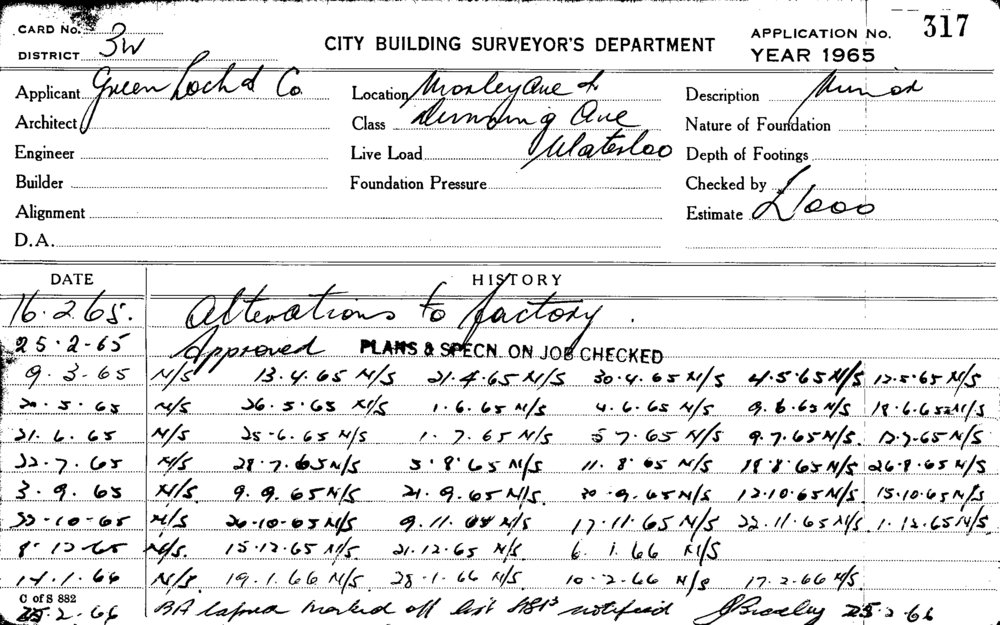 CARD No. 317
DISTRICT 3W CITY BUILDING SURVEYOR'S DEPARTMENT APPLICATION No.
YEAR 1965
Applicant Green Loch & Co. Location Morley Ave & Description Minor
Architect Class Dunning Ave Nature of Foundation
Engineer Live Load Waterloo Depth of Footings
Builder Foundation Pressure Checked by
Alignment Estimate £1000
D.A.
DATE HISTORY
16.2.65. Alterations to factory.
25.2-65 Approved PLANS & SPECN. ON JOB CHECKED
9.3.65 N/S 13.4.65 N/S 21.4.65 N/S 30.4.65 N/S 4.5.65 N/S 12.5.65 N/S
20.5.65 N/S 26.5.65 N/S 1.6.65 N/S 4.6.65 N/S 9.6.65 N/S 18.6.65 N/S
21.6.65 N/S 25-6.65 N/S 1.7.65 N/S 5 7.65 N/S 9.7.65 N/S. 12.7.65 N/S
22.7.65 N/S 28.7.65 N/S 5.8.65 N/S 11.8.65 N/S 18.8.65 N/S 26.8.65 N/S
3.9.65 N/S. 9.9.65 N/S 21.9.65 N/S. 30.9.65 N/S 12.10.65 N/S. 15.10.65 N/S
22-10-65 N/S 26-10-65 N/S 9.11.65 N/S 17.11.65 N/S 22.11.65 N/S 1.12.65 N/S.
8.12.65 N/S. 15.12.65 N/S. 21.12.65 N/S 6.1.66 N/S
14.1.66 N/S. 19.1.66 N/S 28.1.66 N/S 10.2.66 N/S 17.2.66 N/S.
C of S 882
25.2.66 BA lapsed marked off list notified 25.2.66